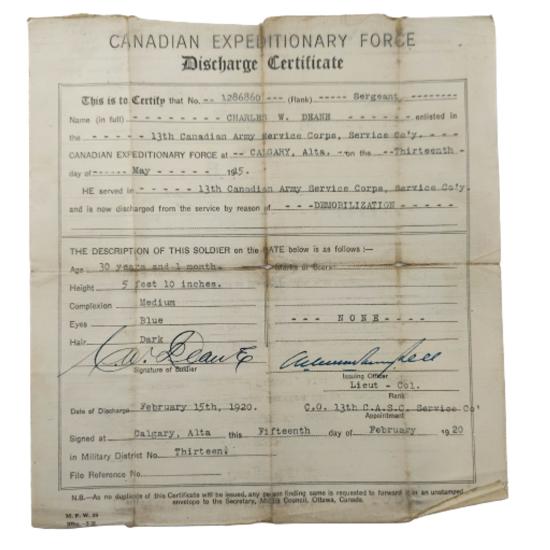 CANADIAN EXPEDITIONARY FORCE
Discharge Certificate
This is to Certify that No. -- 1286860 --- (Rank) ----- Sergeant --------
Name (in full) - - - - - - - - - CHARLES W. DEANE - - - - - - enlisted in
the - - - - - - 13th Canadian Army Service Corps, Service Co'y. - - -
CANADIAN EXPEDITIONARY FORCE at -- CALGARY, Alta. -- on the --Thirteenth -
day of ------ May - - - - - 1915.
HE served in - - - - - - 13th Canadian Army Service Corps, Service Co'y.
and is now discharged from the service by reason of - - - -DEMOBILIZATION - - - - -
THE DESCRIPTION OF THIS SOLDIER on the DATE below is as follows :—
Age 30 years and 1 month. Marks or Scars
Height 5 feet 10 inches.
Complexion Medium
Eyes Blue - - - N O N E - - - -
Hair Dark
C.W. Deane
Signature of Soldier Issuing Officer
Lieut - Col.
Rank
Date of Discharge February 15th, 1920. C.O. 13th C.A.S.C. Service Co'
Appointment
Signed at Calgary, Alta this Fifteenth day of February 1920
in Military District No. Thirteen.
File Reference No.
N.B.—As no duplicate of this Certificate will be issued, any person finding same is requested to forward it in an unstamped
envelope to the Secretary, Militia Council, Ottawa, Canada.
M. F. W. 39